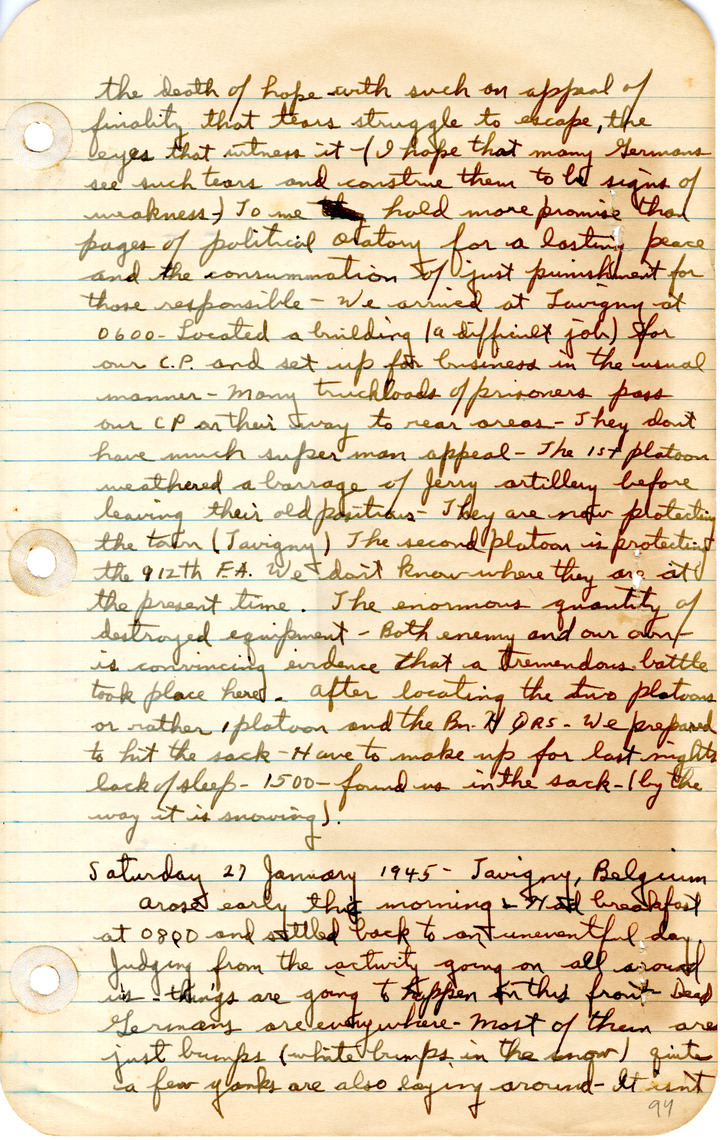 the death of hope with such an appeal of
finality that tears struggle to escape, the
eyes that witness it - (I hope that many Germans
see such tears and construe them to be signs of
weakness -) To me hold more promise than
pages of political oratory for a lasting peace
and the consummation of just punishment for
those responsible - We arrived at Tavigny at
0600 - Located a building (a difficult job) for
our C.P. and set up for business in the usual
manner - Many truckloads of prisoners pass
our CP on their way to rear areas - They dont
have much super man appeal - The 1st platoon
weathered a barrage of Jerry artillery before
leaving their old positions - They are now protecting
the town (Tavigny) The second platoon is protecting
the 912th F.A. We don't know where they are at
the present time. The enormous quantity of
destroyed equipment - Both enemy and our own -
is convincing evidence that a tremendous battle
took place here. After locating the two platoons
or rather 1 platoon and the Bn. H QRS - We prepared
to hit the sack - Have to make up for last nights
lack of sleep - 1500 - found us in the sack - (by the
way it is snowing).
Saturday 27 January 1945 - Tavigny, Belgium
Arose early this morning - Had breakfast
at 0800 and settled back to an uneventful day
Judging from the activity going on all around
us - things are going to happen on this front - Dead
Germans are everywhere - Most of them are
just bumps (white bumps in the snow) quite
a few yanks are also laying around - It isnt
94